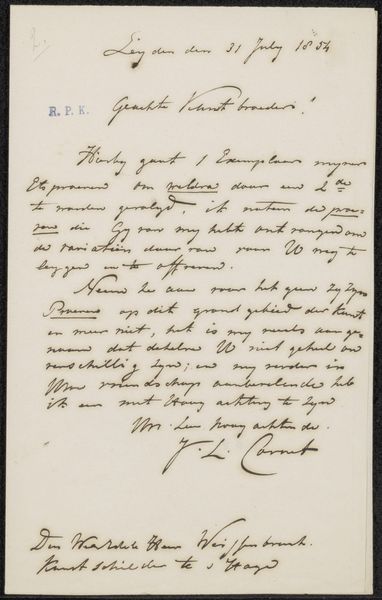 Leyden den 31 July 1854
R. P. K.
Geachte Kunstbroeders!
Hierby gaat 1 Exemplaar myner
Etsproeven om weldra door een 2de
te worden gevolgd, ik neem de
die Gy van my hebt ontvangen om
de variatien daar van voor U weg te
leggen en te offreren.
Neem ze aan voor het geen zy zyn
Proeven op dit groot gebied der Kunst
en meer niet, het is my reeds aange-
naam dat dezelve U niet geheel on
verschillig zyn; en my verder in
Uwe vriendschap aanbevelende heb
ik eer met Hoog achting te zyn
J. L. Cornet
Den Heer Weissenbruch
Kunstschilder te s Hage